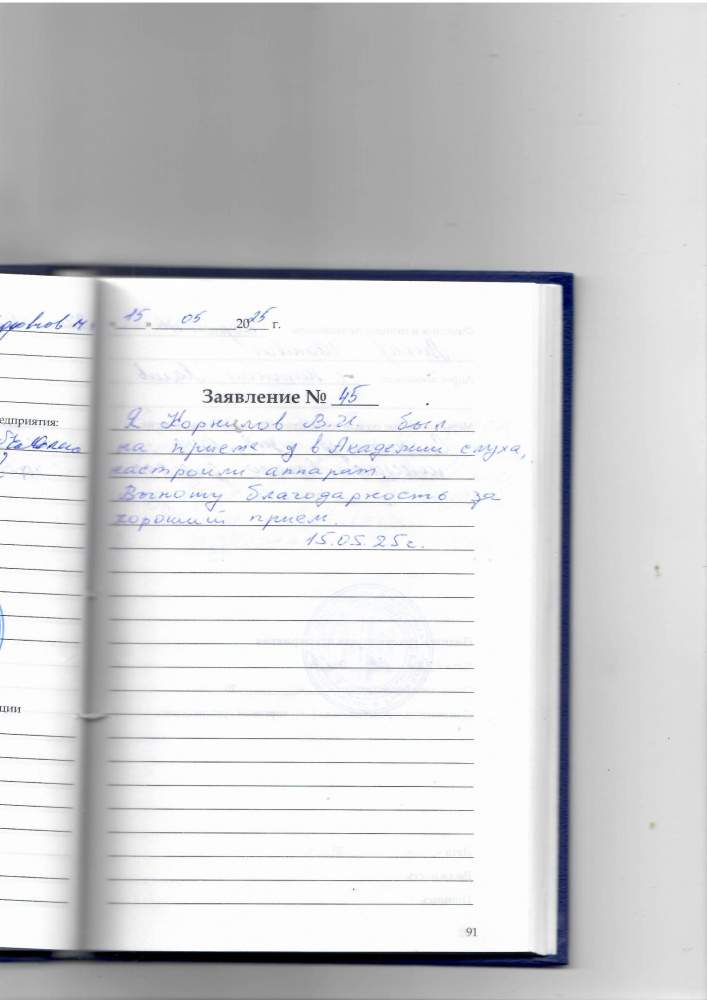 «15» 05 2025 г.
Заявление № 45
Я Корнилов В.И. был
на приеме у в Академии слуха,
настроили аппарат.
Выношу благодарность за
хороший прием.
15.05.25г.
едприятия:
ции
91